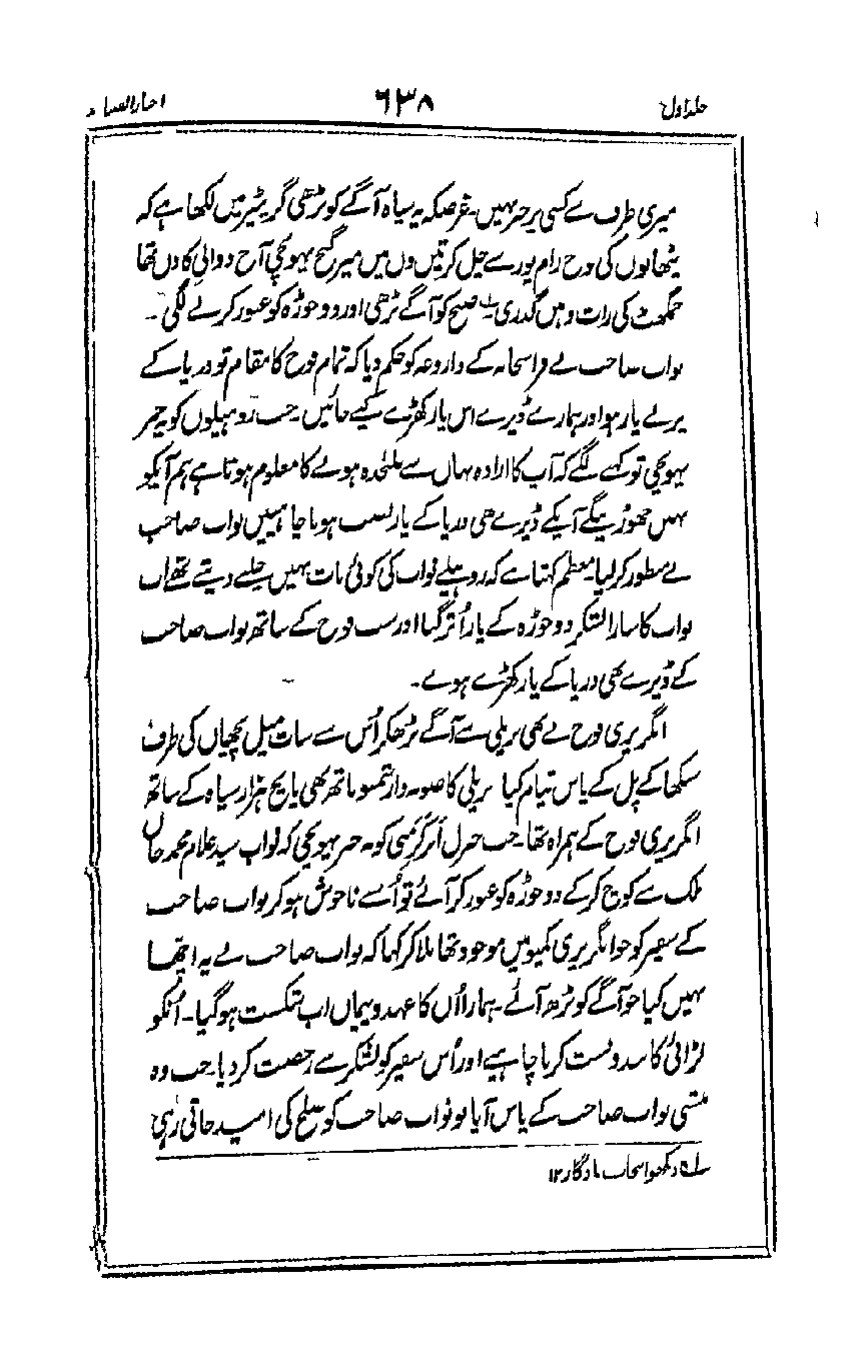 جلد اول ۶۳۸ اخبار الصنادید
میری طرف سے کسی پر جبر نہیں۔ غرضکہ یہ سپاہ آگے کو بڑھی گزیٹیر میں لکھا ہے کہ
پٹھانوں کی فوج رام پور سے چل کر تیں دن میں میر گنج پہونچی آج دوالی کا دن تھا
جمگھٹ کی رات وہیں گذری ؎ صبح کو آگے بڑھی اور دوجوڑہ کو عبور کرنے لگی۔
نواب صاحب نے فراشخانہ کے داروغہ کو حکم دیا کہ تمام فوج کا مقام تو دریا کے
پرلے پار ہو اور ہمارے ڈیرے اس پار کھڑے کیے جائیں۔ جب روہیلوں کو خبر
پہونچی تو کہنے لگے کہ آپ کا ارادہ یہاں سے علٰحدہ ہونے کا معلوم ہوتا ہے ہم آپکو
نہیں چھوڑینگے آپکے ڈیرے بھی دریا کے پار نصب ہونا چاہئیں نواب صاحب
نے منظور کر لیا۔ معظم کہتا ہے کہ روہیلے نواب کی کوئی بات نہیں چلنے دیتے تھے اب
نواب کا سارا لشکر دوجوڑہ کے پار اُتر گیا اور سب فوج کے ساتھ نواب صاحب
کے ڈیرے بھی دریا کے پار کھڑے ہوے۔
انگریزی فوج نے بھی بریلی سے آگے بڑھکر اُس سے سات میل پچھیاں کی طرف
سنکھا کے پل کے پاس قیام کیا بریلی کا صوبہ دار شمبوناتھ بھی پانچ ہزار سپاہ کے ساتھ
انگریزی فوج کے ہمراہ تھا۔ جب جنرل ابرکرمبی کو یہ خبر پہونچی کہ نواب سید غلام محمد خاں
ملک سے کوچ کر کے دوجوڑہ کو عبور کر آئے تو اُسنے ناخوش ہو کر نواب صاحب
کے سفیر کو جو انگریزی کمپو میں موجود تھا بلا کر کہا کہ نواب صاحب نے یہ اچھا
نہیں کیا جو آگے کو بڑھ آئے۔ ہمارا اُن کا عہد و پیماں اب شکست ہو گیا۔ اُنکو
لڑائی کا بندوبست کرنا چاہیے اور اُس سفیر کو لشکر سے رخصت کر دیا۔ جب وہ
منشی نواب صاحب کے پاس آیا تو نواب صاحب کو صلح کی امید جاتی رہی
؎ دیکھو انتخاب یادگار ۱۲